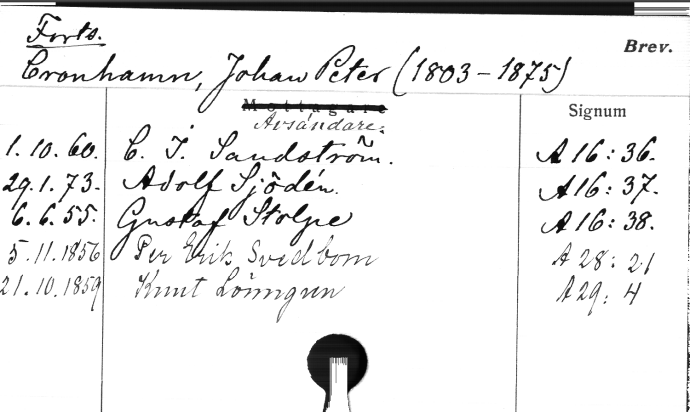 Forts.
Brev.
Cronhamn, Johan Peter (1803-1875)
Mottagare
Signum
Avsändare:
1.10.60. C. J. Sandström. A 16: 36.
29.1.73. Adolf Sjödén. A 16: 37.
6.6.55. Gustaf Stolpe A 16: 38.
5.11.1856 Per Erik Svedbom A 28: 21
21.10.1859 Knut Lönngren A 29: 4